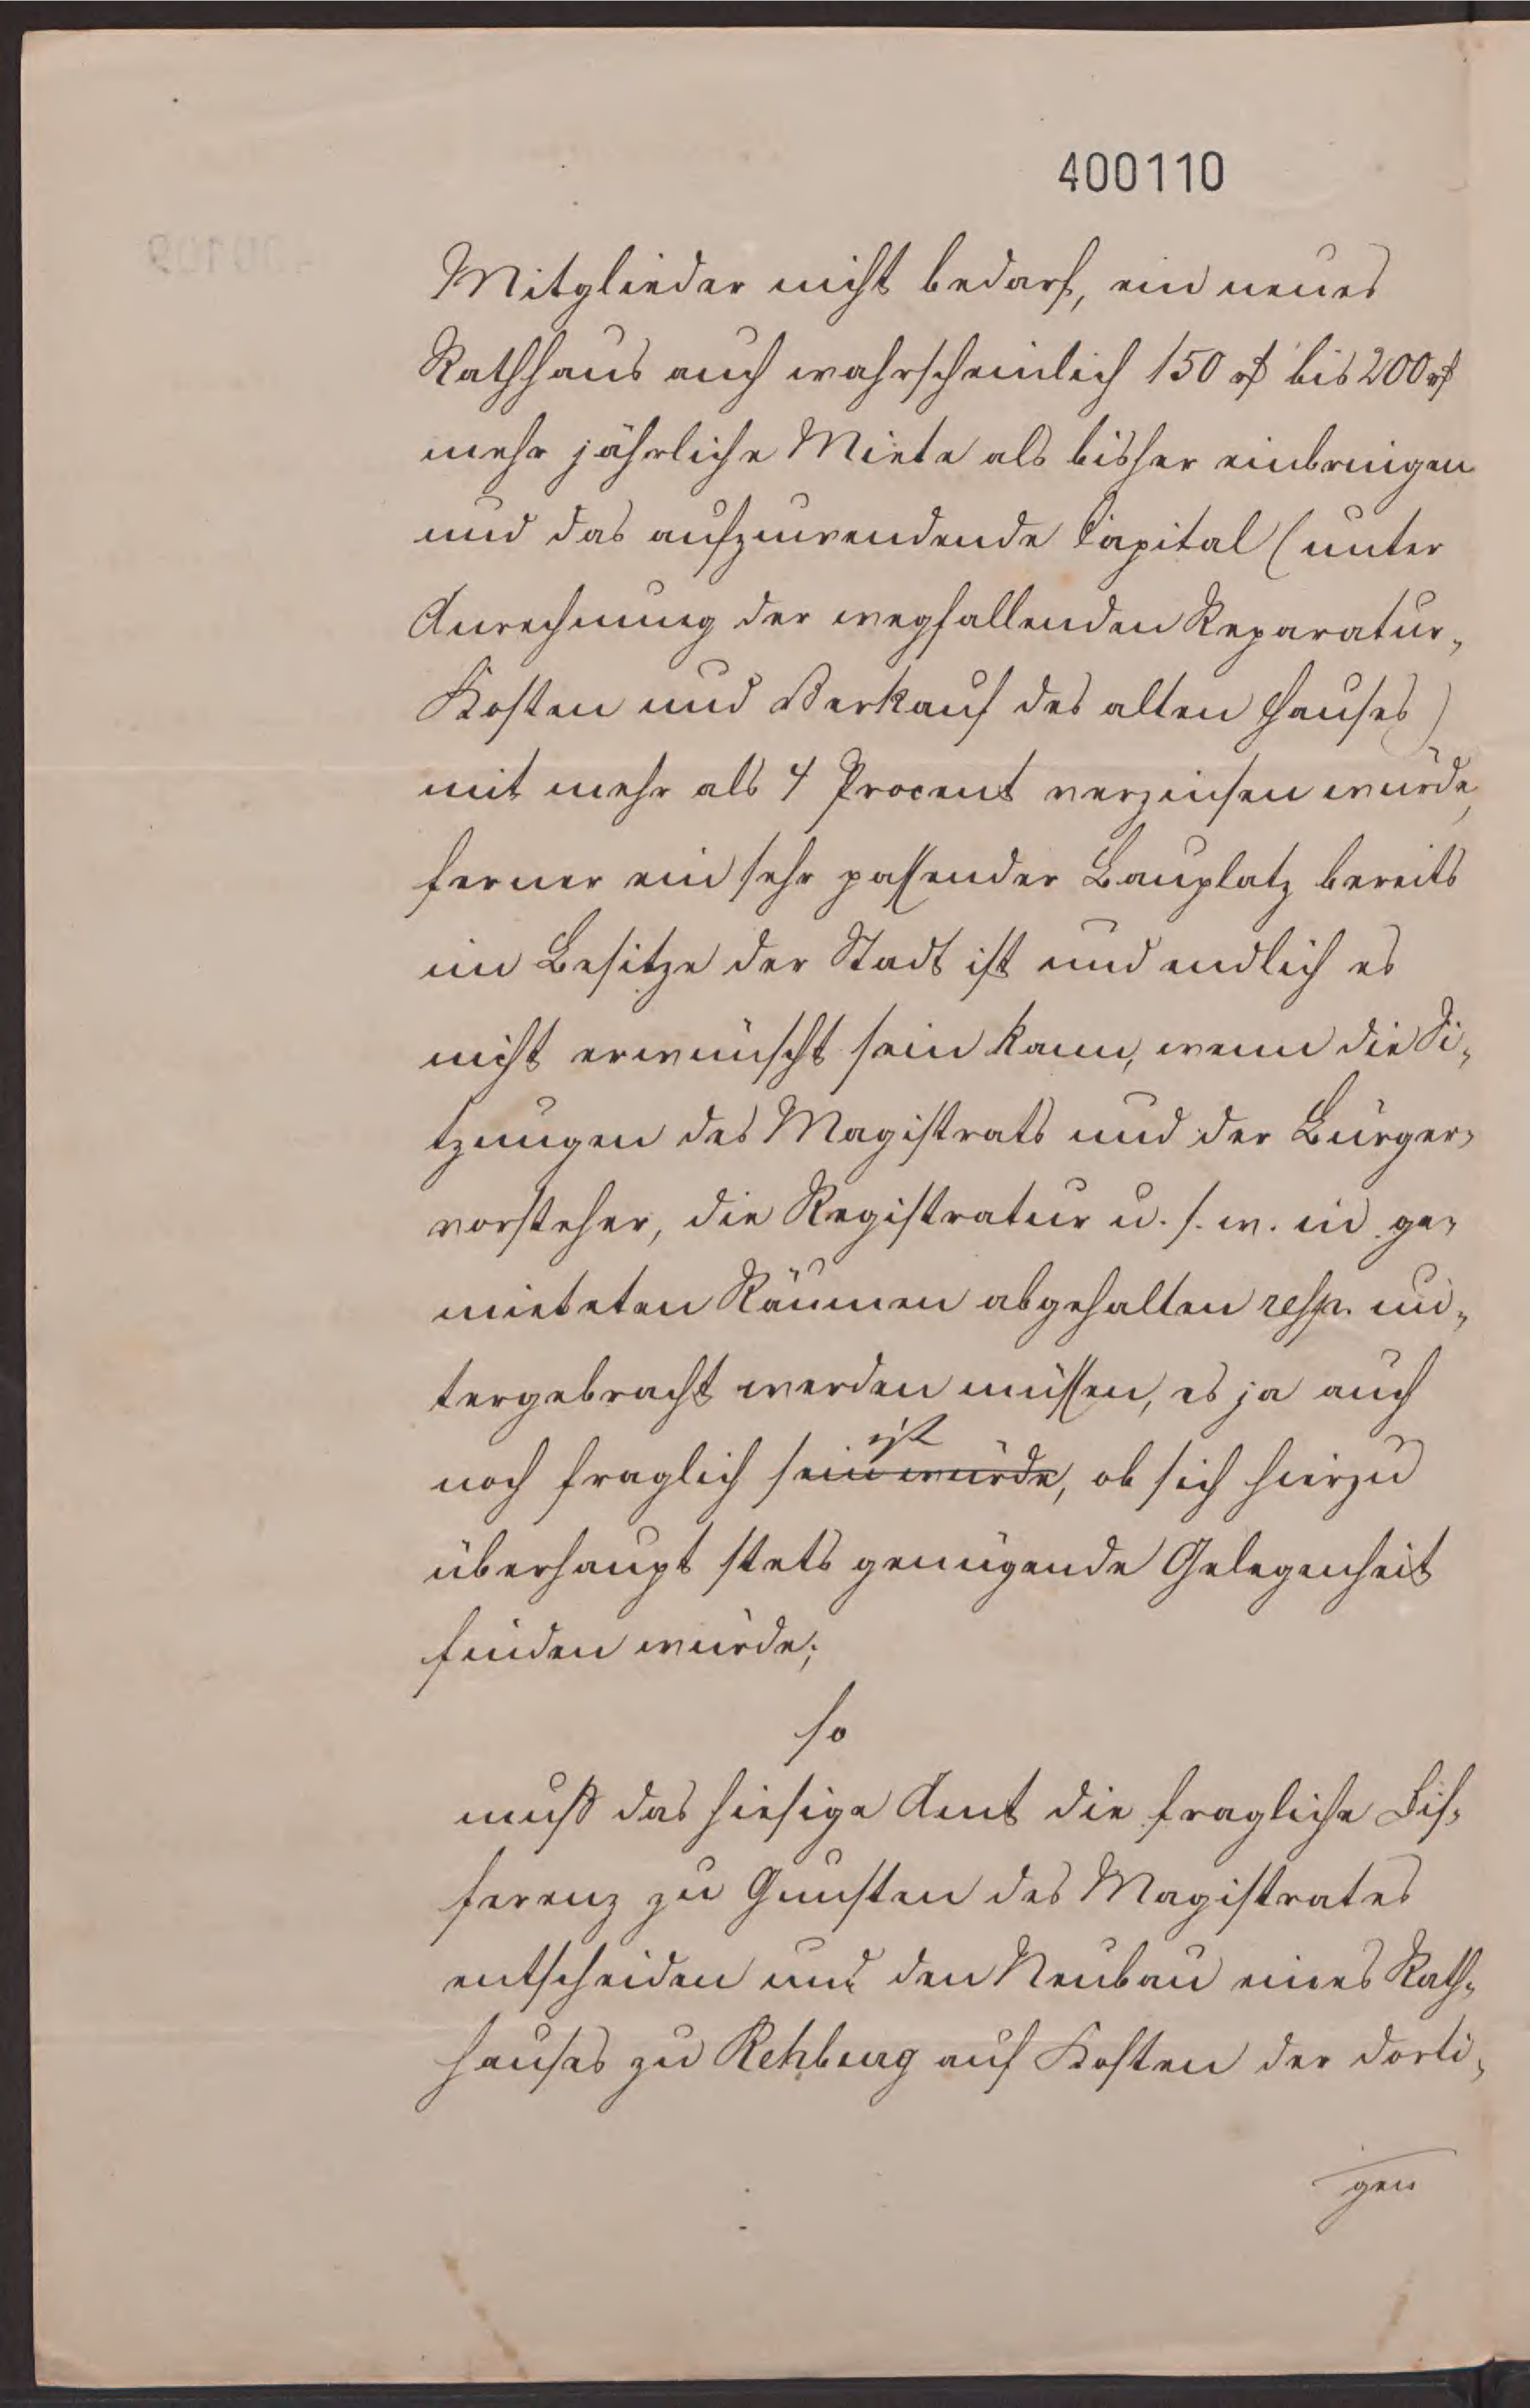 400110
Mitglieder nicht bedarf, ein neues
Rathhaus auch wahrscheinlich 150 rf bis 200 rf
mehr jährliche Miete als bisher einbringen
und das aufzuwendende Capital (unter
Anrechnung der wegfallenden Reparatur„
Kosten und Verkauf des alten Hauses)
mit mehr als 4 Procent verzinsen würde,
ferner ein sehr passender Bauplatz bereits
im Besitze der Stadt ist und endlich es
nicht erwünscht sein kann, wenn die Si„
tzungen des Magistrats und der Bürger„
vorsteher, die Registratur u. s. w. in ge„
mieteten Räumen abgehalten resp. un„
tergebracht werden müssen, es ja auch
ist
noch fraglich sein würde, ob sich hierzu
überhaupt stets genügende Gelegenheit
finden würde;
so
muß das hiesige Amt die fragliche Dif„
ferenz zu Gunsten des Magistrates
entscheiden und den Neubau eines Rath„
hauses zu Rehburg auf Kosten der dorti„
gen